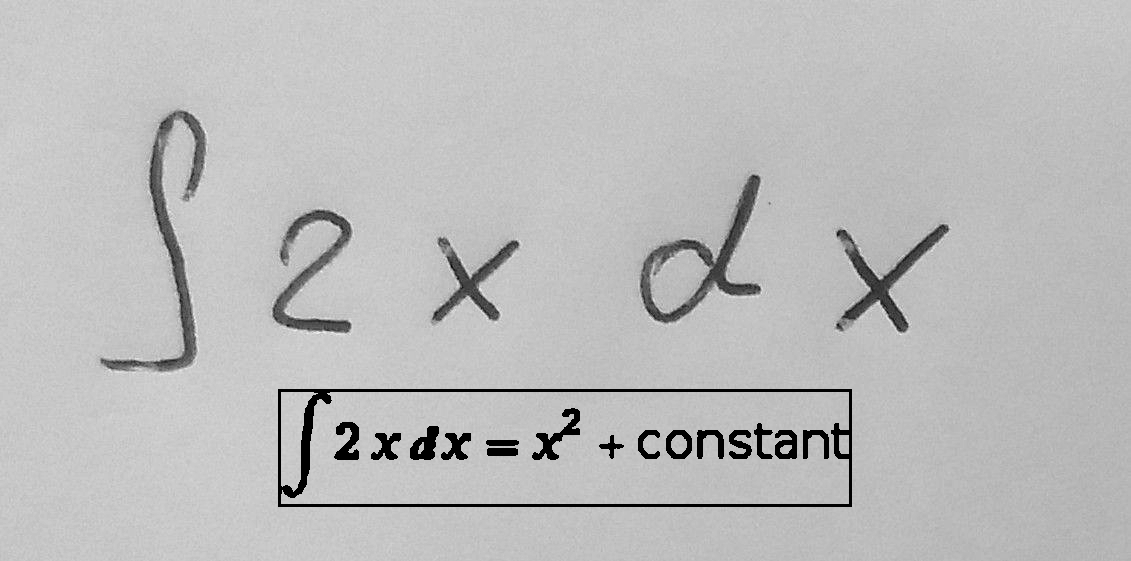 ∫ 2 x d x
∫ 2 x dx = x² + constant